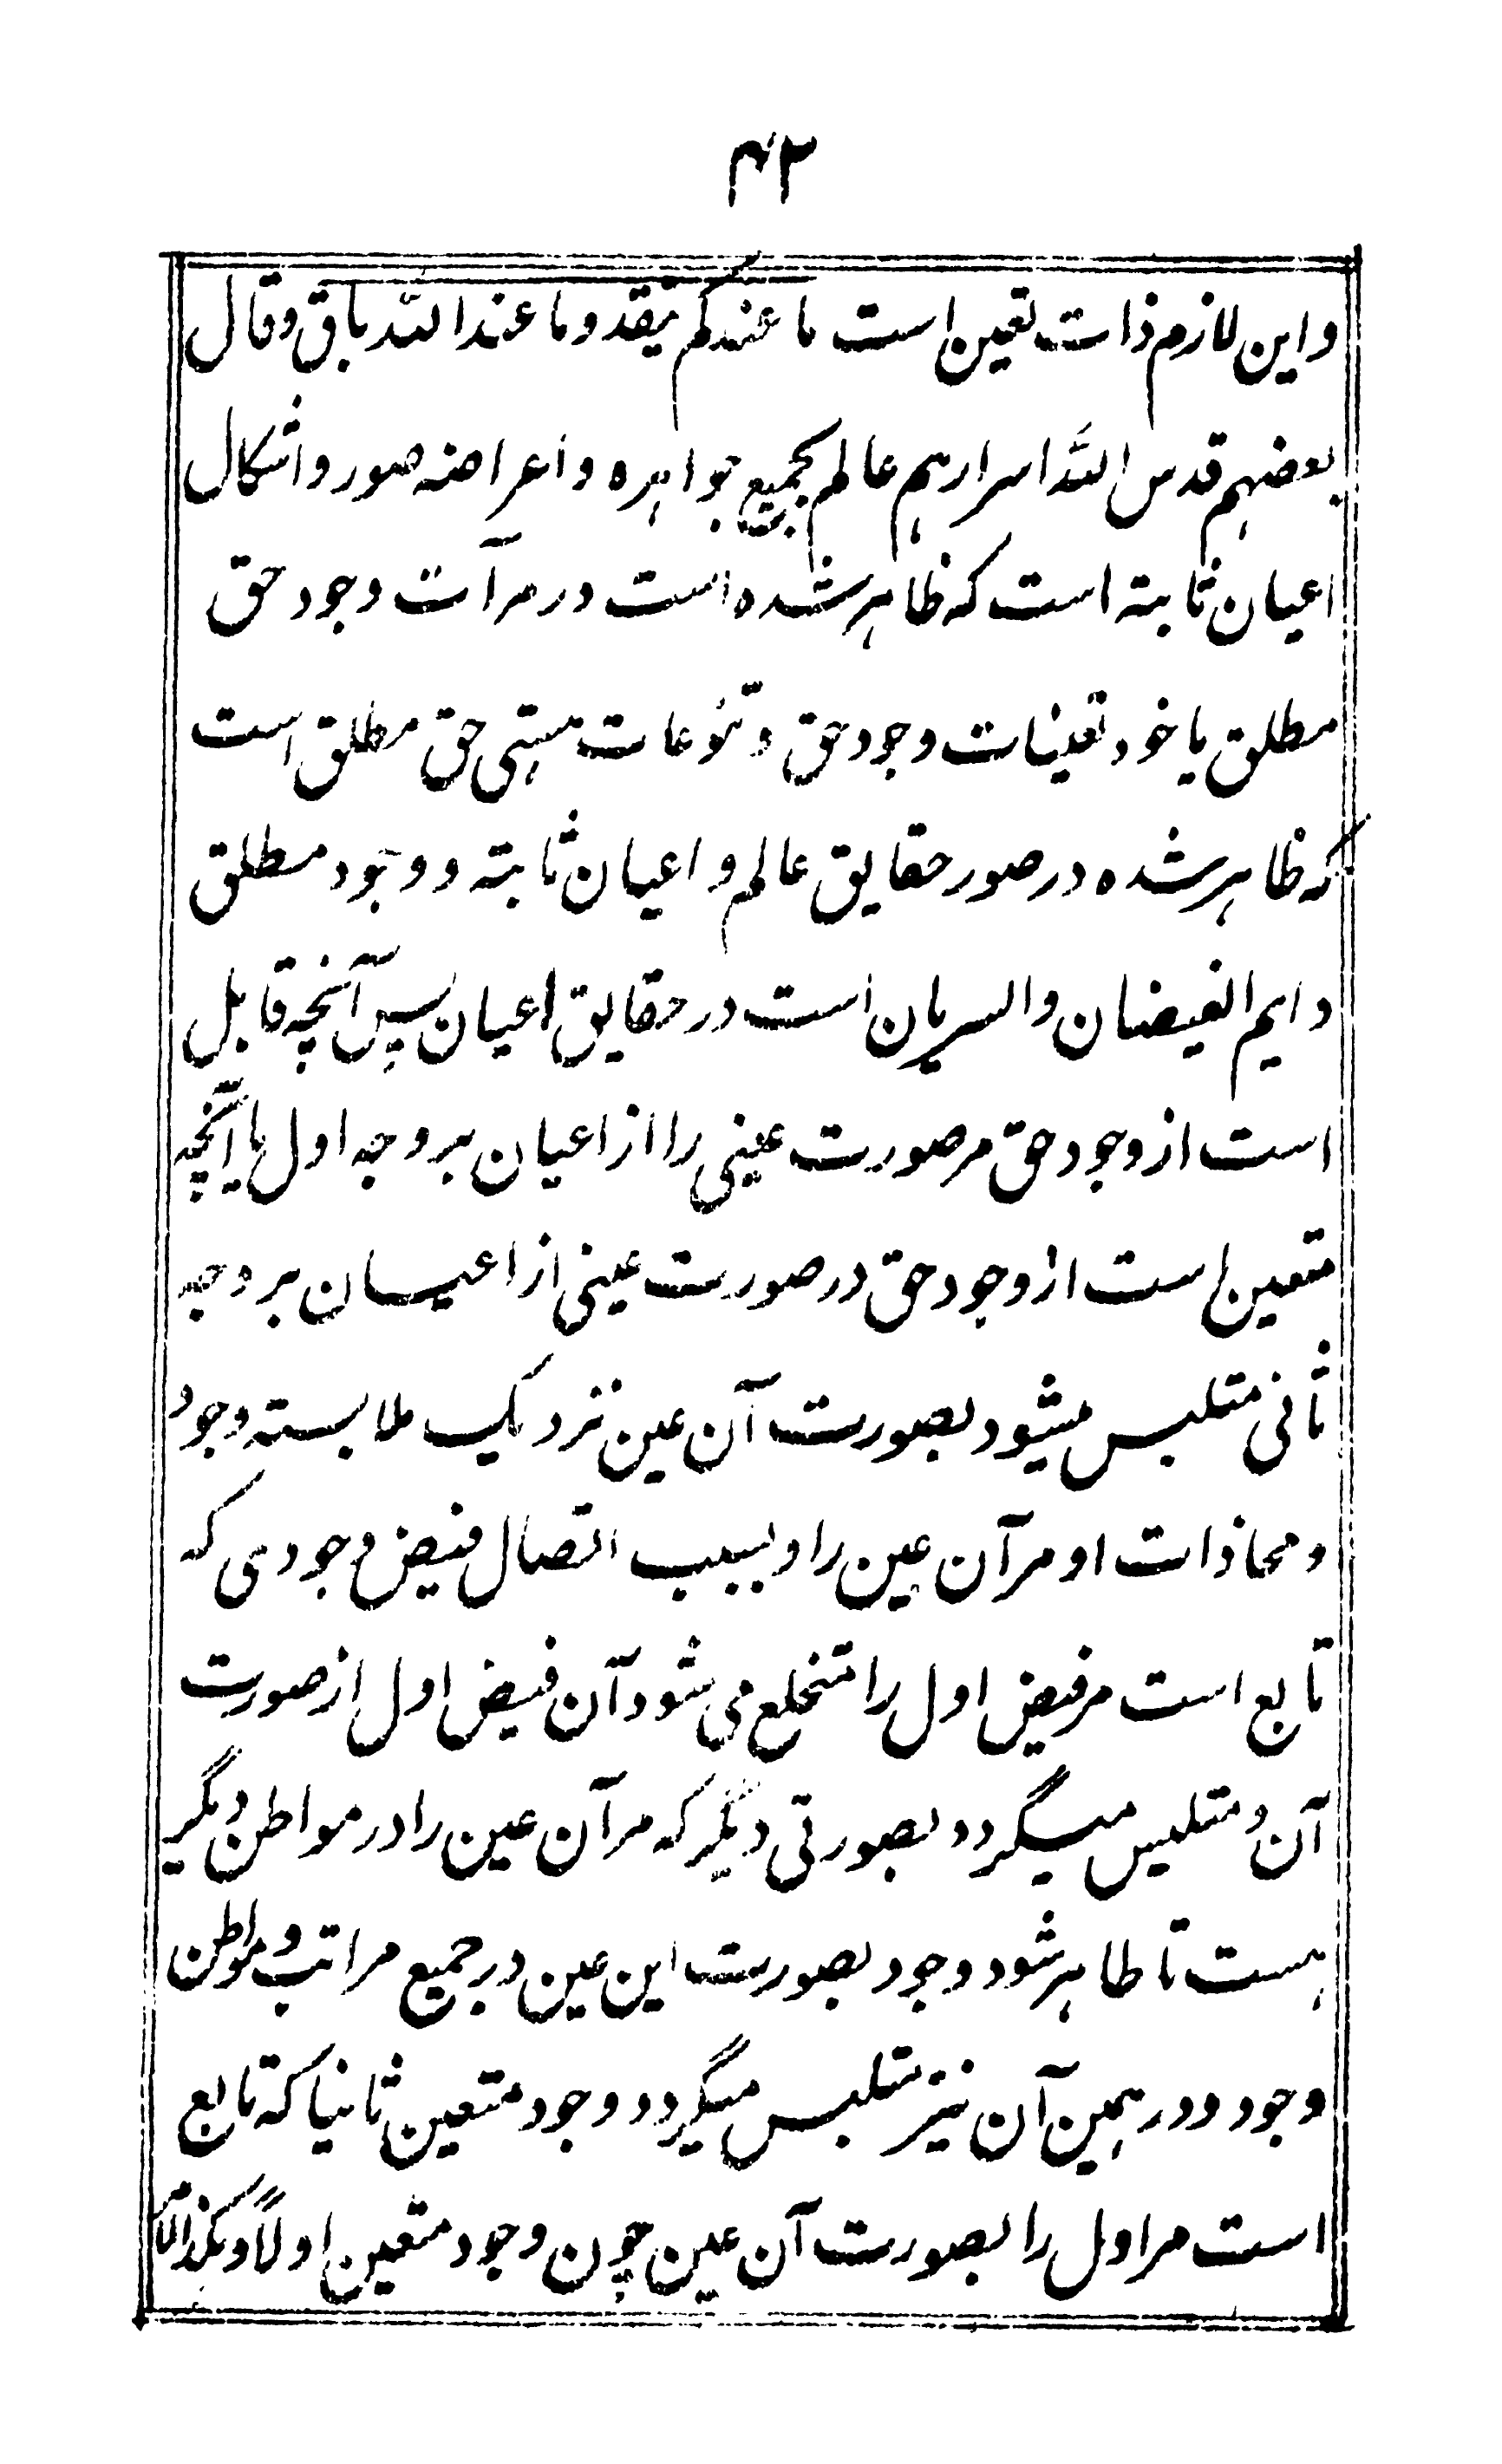 ۴۲
و این لازم ذات تعین است ما عندکم ینفد و ما عند الله باق و قال
بعضهم قدس الله اسرارهم عالم بجمیع جواهره و اعراضه صور و اشکال
اعیان ثابته است که ظاهر شده است در مرآت وجود حق
مطلق یا خود تعینات وجود حق و تنوعات هستی حق مطلق است
که ظاهر شده در صور حقایق عالم و اعیان ثابته و وجود مطلق
دایم الفیضان و السریان است در حقایق اعیان پس آنچه قابل
است از وجود حق مر صورت عینی را از اعیان بر وجه اول یا آنچه
متعین است از وجود حق در صورت عینی از اعیان بر وجه
ثانی متلبس میشود بصورت آن عین نزدیک ملابسته وجود
و محاذات او مر آن عین را و بسبب اتصال فیض وجودی که
تابع است مر فیض اول را متخلع می شود آن فیض اول از صورت
آن و متلبس میگردد بصورتی دیگر که مر آن عین را در مواطن دیگر
هست تا ظاهر شود وجود بصورت این عین در جمیع مراتب و مواطن
وجود و در همین آن نیز متلبس میگردد وجود متعین ثانیا که تابع
است مر اول را بصورت آن عین چون وجود متعین اولاً و هکذا